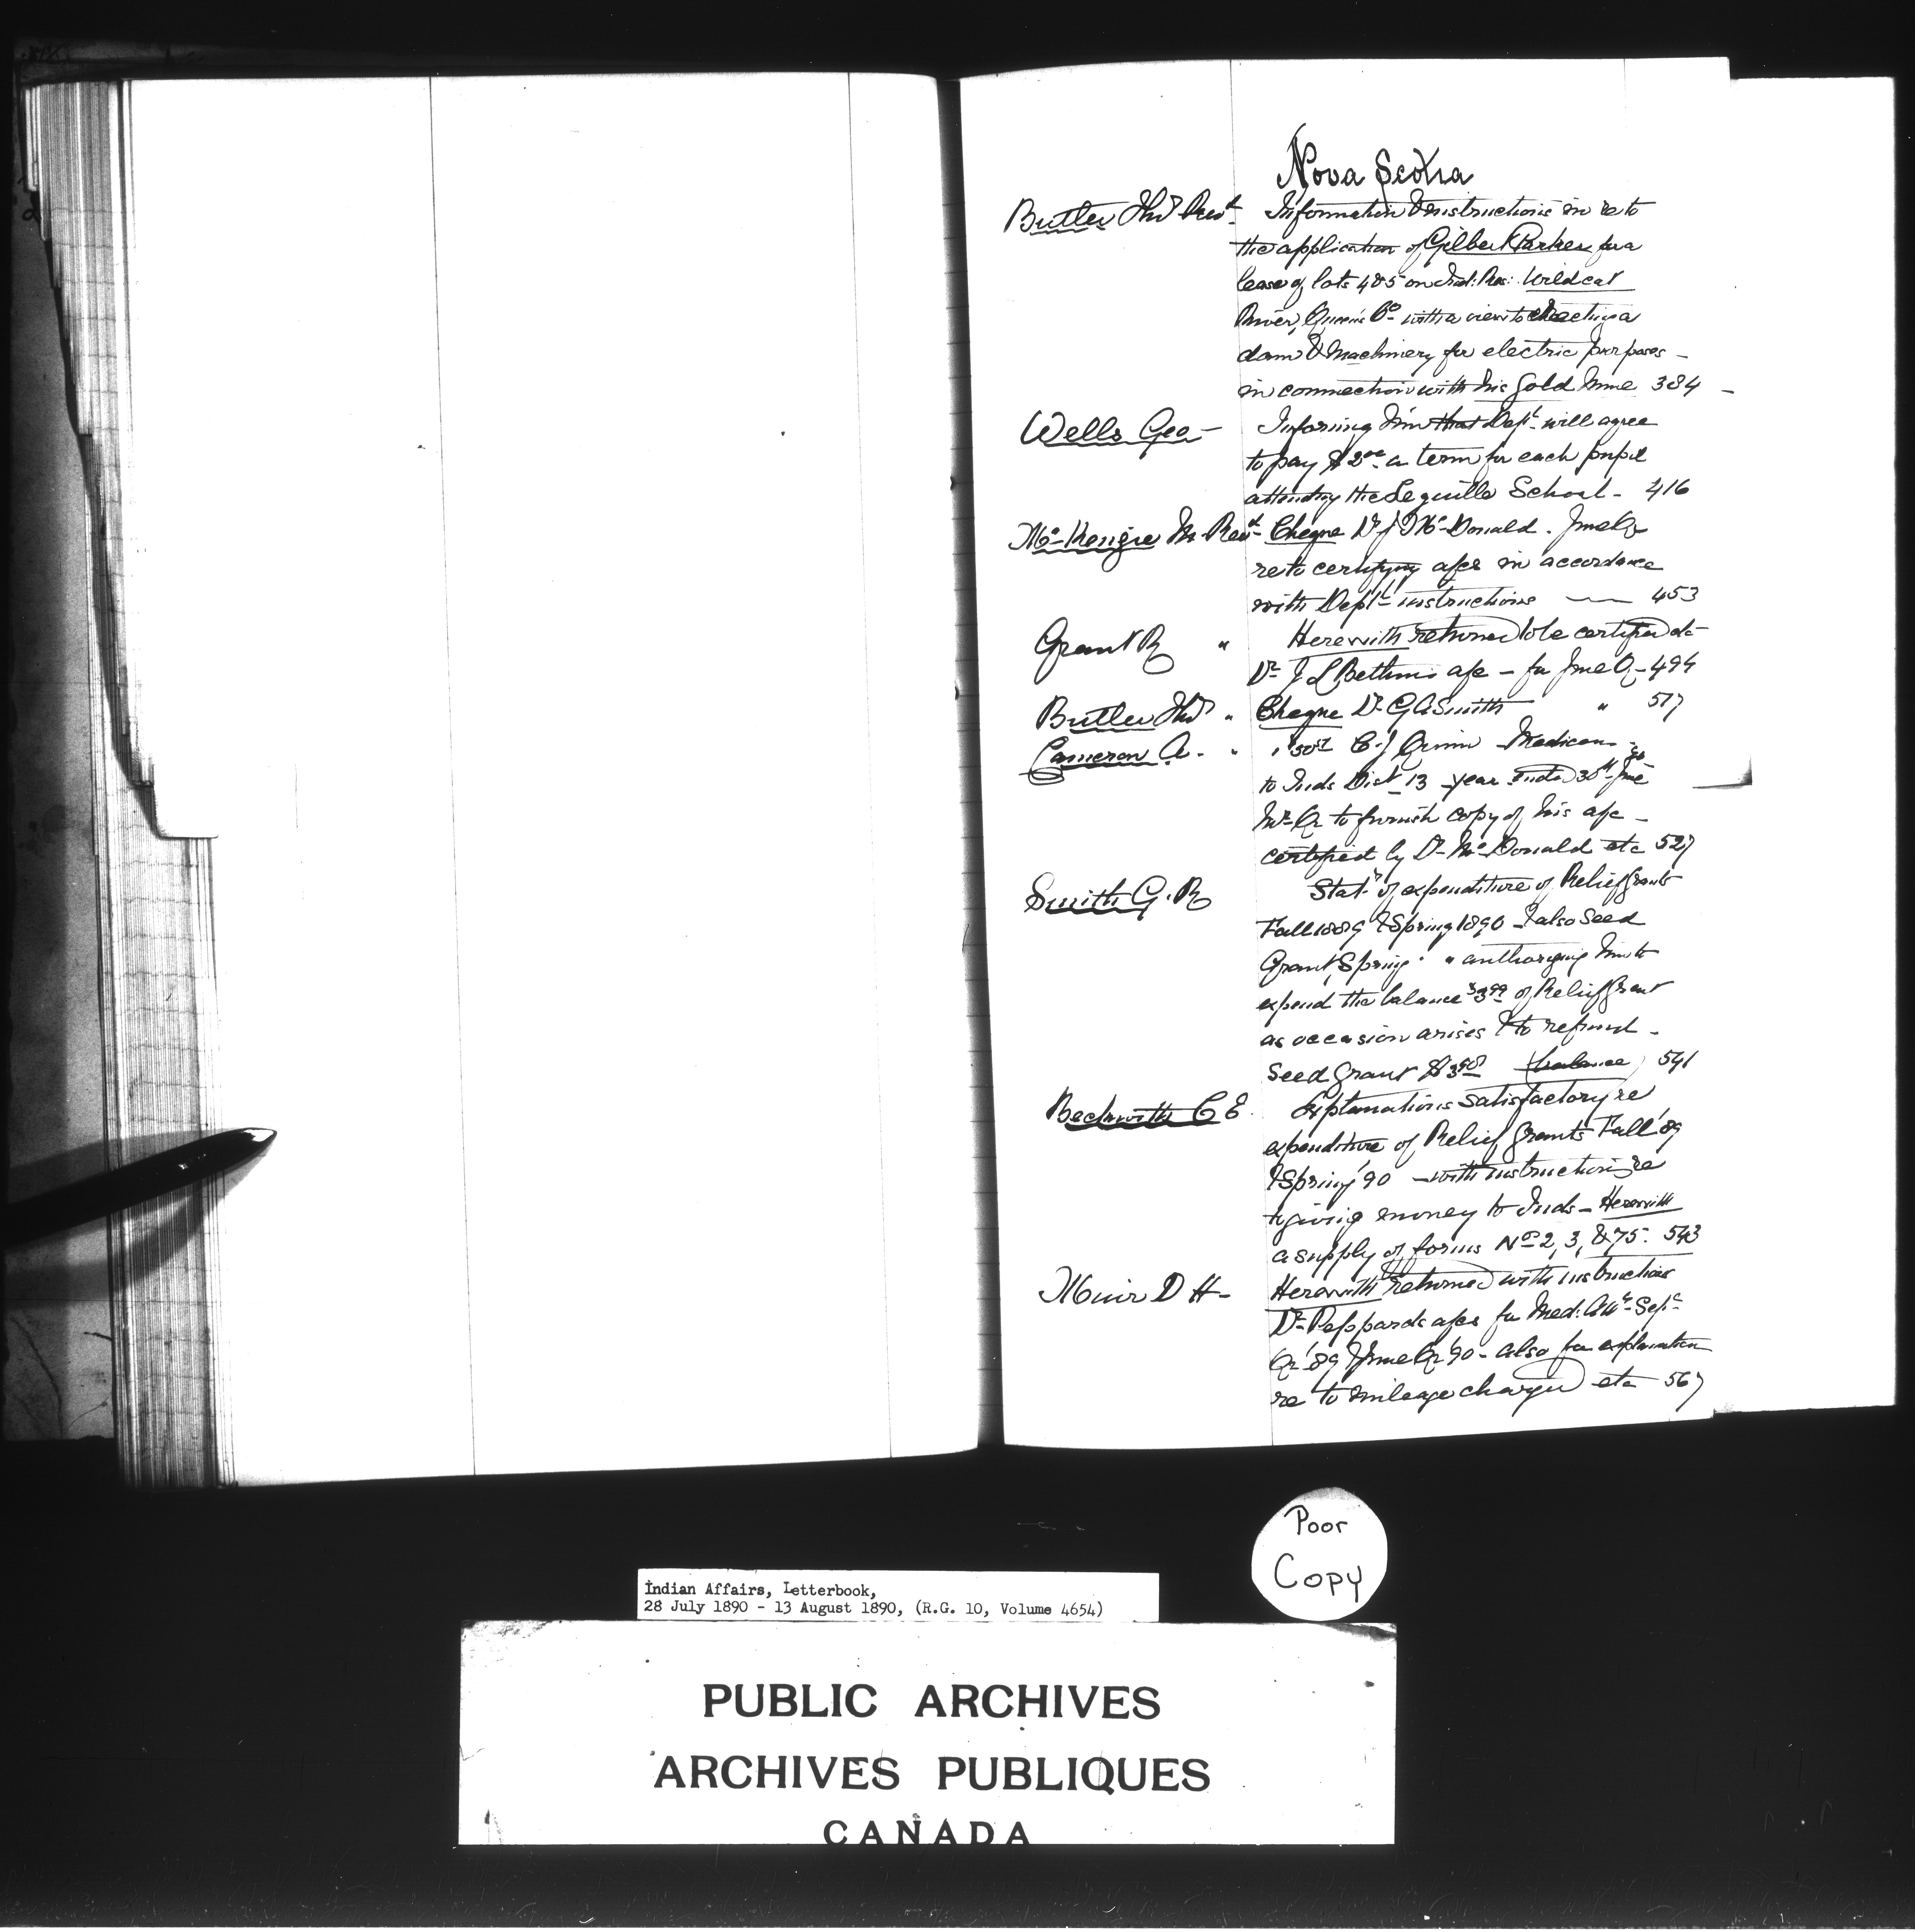 Nova Scotia
Butler Thos Revd Information & instructions in re to
the application of Gilbert Parker for a
lease of lots 4&5 on Ind: Res: Wildcat
River, Queen's Co with a view to erecting a
dam & machinery for electric purposes -
in connection with his Gold Mine 384 -
Wells Geo - Informing him that Dept. will agree
to pay $2.00 a term for each pupil
attending the Lequille School - 416
McKenzie M. Revd Cheque Dr J McDonald. June Qr
re to certifying a/cs in accordance
with Dept instructions — 453
Grant R " Herewith returned to be certified etc
Dr J L Bethune a/c - for June Qr - 494
Butler Thos " Cheque Dr G A Smith " 517
Cameron A. " C. J. Quinn Medicans
to Inds Dist 13 - year ended 30th June '90
Mr Q to furnish copy of his a/c -
certified by Dr McDonald etc 527
Smith G. R Statt of expenditure of Relief Grants
Fall 1889 & Spring 1890 - & also Seed
Grant, Spring " " authorizing him to
expend the balance $3.99 of Relief Grant
as occasion arises & to refund -
Seed Grant (balance) 541
Beckwith C E. Explanations satisfactory re
expenditure of Relief Grants Fall '89
& Spring '90 - with instructions re
to giving money to Inds - Herewith
a supply of forms Nos 2, 3, & 75. 543
Muir D H - Herewith returned with instructions
Dr Peppards a/cs for Med: Att. Sept
Qr '89 & June Qr '90 - also for explanation
re to mileage charged etc 567
Poor
Copy
Indian Affairs, Letterbook,
28 July 1890 - 13 August 1890, (R.G. 10, Volume 4654)
PUBLIC ARCHIVES
ARCHIVES PUBLIQUES
CANADA